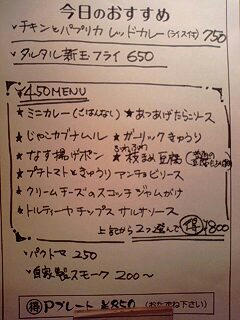 今日のおすすめ
・チキンとパプリカ レッドカレー(ライス付) 750
・タルタル新玉フライ 650
¥450MENU
★ミニカレー(ごはんない) ★あつあげたらこソース
★じゃこカブナムル ★ガーリックきゅうり
★なす揚げポン ★ふわふわ枝まめ豆腐
★プチトマトときゅうり アンチョビソース
★クリームチーズのスコッチジャムがけ
★トルティーヤチップス サルサソース
上記から2つ選んで 得 ¥800
・パクトマ 250
・自家製スモーク 200〜
得 Pプレート ¥850 (おたずね下さい)